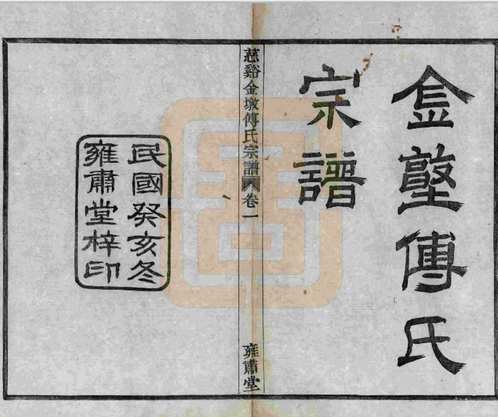 金墪傅氏
宗譜
慈谿金墩傅氏宗譜 卷一
雍肅堂
民國癸亥冬
雍肅堂梓印